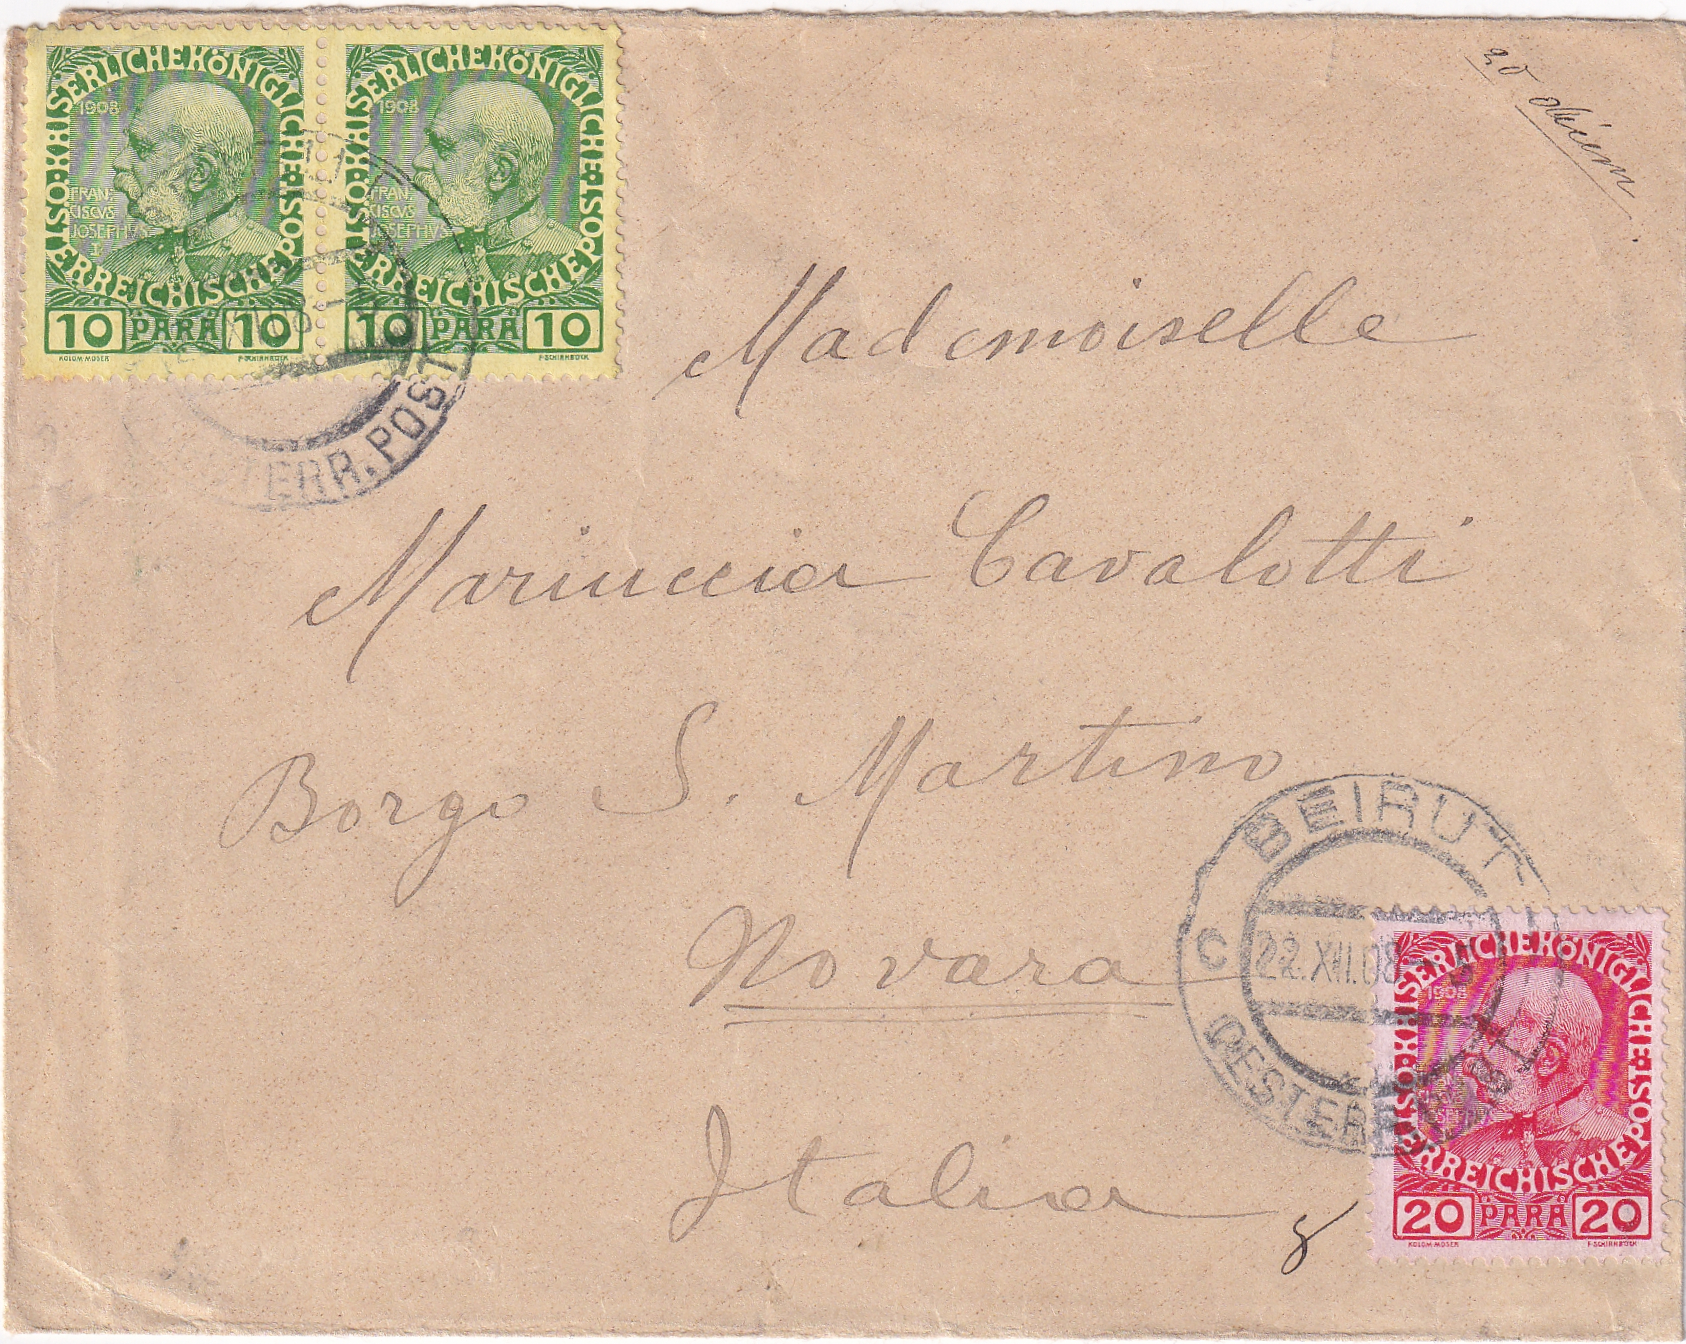 KAISERLICHEKÖNIGLICHE ÖSTERREICHISCHE POST
1908
FRAN
CISCVS
JOSEPHVS
I.
10 PARA 10
KOLOM. MOSER F. SCHIRNBÖCK
KAISERLICHEKÖNIGLICHE ÖSTERREICHISCHE POST
1908
FRAN
CISCVS
JOSEPHVS
10 PARA 10
KOLOM. MOSER F. SCHIRNBÖCK
TERR. POST
20
Mademoiselle
Mariuccia Cavalotti
Borgo S. Martino
Novara
Italia
BEIRUT
C
22.XII.08
OESTERR. POST
KAISERLICHEKÖNIGLICHE ÖSTERREICHISCHE POST
1908
20 PARA 20
KOLOM. MOSER F. SCHIRNBÖCK
8